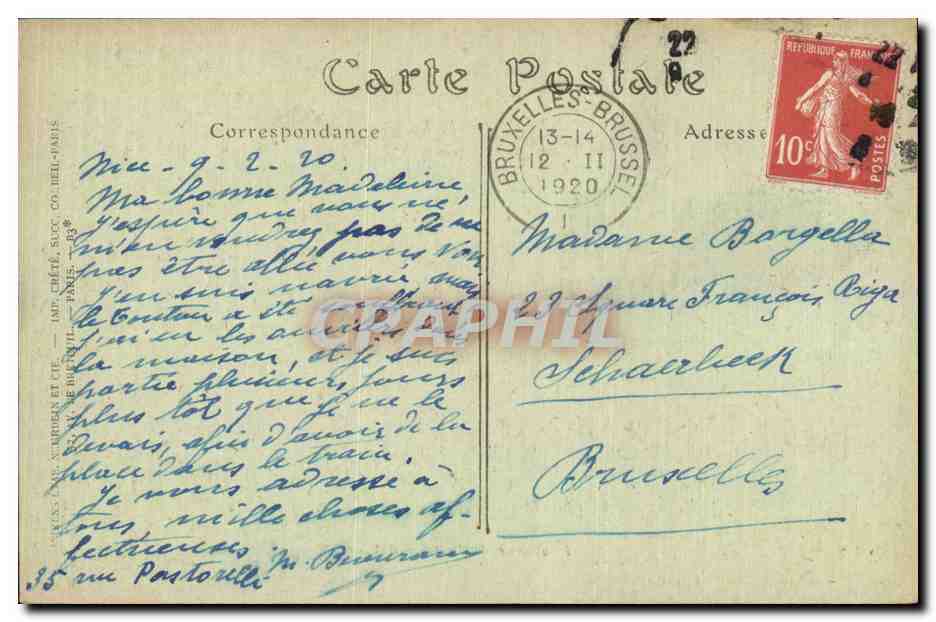 Carte Postale
Correspondance
Adresse
BRUXELLES-BRUSSEL
13-14
12 II
1920
1
22
22
REPUBLIQUE FRANÇ
10c
POSTES
Nice - 9. 2. 20.
Ma bonne Madeleine
J'espère que vous ne
m'en voudrez pas de ne
pas être allée vous voir
j'en suis navrée, mais
le Toutou a été souffrant
j'ai eu les ouvriers
la maison, et je suis
partie plusieurs jours
plus tôt que je ne le
devais, afin d'avoir de la
place dans le train.
Je vous adresse à
tous, mille choses af-
fectueuses
35 rue Pastorelli
Madame Borgella
22 Square François Riga
Schaerbeek
Bruxelles
ET CIE. — IMP. CRÉTÉ, SUCC. CORBEIL-PARIS
DE BRETEUIL. PARIS. — B3*
CPAPHIL